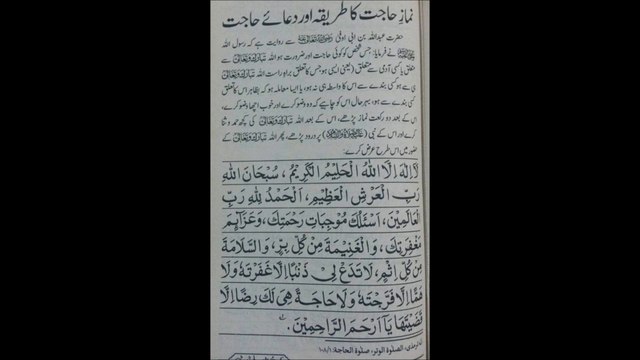 نمازِ حاجت کا طریقہ اور دعائے حاجت
حضرت عبداللہ بن ابی اوفیٰ سے روایت ہے کہ رسول اللہ
نے فرمایا: جس شخص کو کوئی حاجت اور ضرورت ہو اللہ تبارک وتعالیٰ سے
متعلق یا کسی آدمی سے متعلق (یعنی ایسی ہو جس کا تعلق براہِ راست اللہ تبارک وتعالیٰ سے
ہی ہو کسی بندے سے اس کا واسطہ ہی نہ ہو، یا ایسا معاملہ ہو کہ بظاہر اس کا تعلق
کسی بندے سے ہو، بہرحال اس کو چاہیے کہ وہ وضو کرے اور خوب اچھا وضو کرے،
اس کے بعد دو رکعت نماز پڑھے، اس کے بعد اللہ تبارک وتعالیٰ کی کچھ حمد و ثنا
کرے اور اس کے نبی پر درود پڑھے، پھر اللہ تبارک وتعالیٰ کے
حضور میں اس طرح عرض کرے:
لَا اِلٰهَ اِلَّا اللّٰهُ الْحَلِيْمُ الْكَرِيْمُ، سُبْحَانَ اللّٰهِ
رَبِّ الْعَرْشِ الْعَظِيْمِ، اَلْحَمْدُ لِلّٰهِ رَبِّ
الْعَالَمِيْنَ، اَسْئَلُكَ مُوْجِبَاتِ رَحْمَتِكَ، وَعَزَائِمَ
مَغْفِرَتِكَ، وَالْغَنِيْمَةَ مِنْ كُلِّ بِرٍّ، وَالسَّلَامَةَ
مِنْ كُلِّ اِثْمٍ، لَا تَدَعْ لِيْ ذَنْۢبًا اِلَّا غَفَرْتَهٗ وَلَا
هَمًّا اِلَّا فَرَّجْتَهٗ وَلَا حَاجَةً هِيَ لَكَ رِضًا اِلَّا
قَضَيْتَهَا يَا اَرْحَمَ الرَّاحِمِيْنَ.
الصلوة الوتر، صلوة الحاجة: ۱۰۸/۱